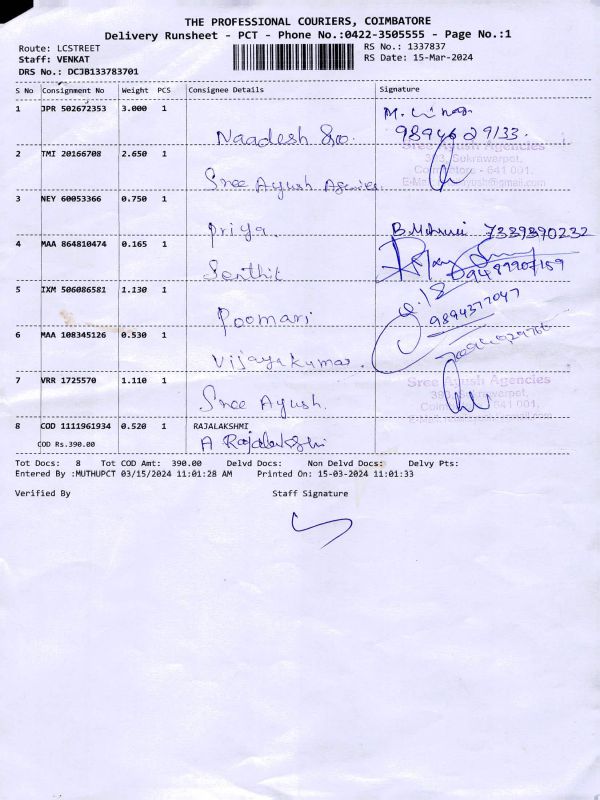 THE PROFESSIONAL COURIERS, COIMBATORE
Delivery Runsheet - PCT - Phone No.:0422-3505555 - Page No.:1
Route: LCSTREET RS No.: 1337837
Staff: VENKAT RS Date: 15-Mar-2024
DRS No.: DCJB133783701
S No Consignment No Weight PCS Consignee Details Signature
1 JPR 502672353 3.000 1
Naadesh
2 TMI 20166708 2.650 1 Sree Ayush Agencies
Sukrawarpet,
Sree Ayush Agencies 641 001.
3 NEY 60053366 0.750 1
Priya. 7339390232
4 MAA 864810474 0.165 1
Senthil
5 IXM 506086581 1.130 1
Poomari 9894377047
6 MAA 108345126 0.530 1
Vijayakumar.
7 VRR 1725570 1.110 1 Sree Ayush Agencies
Sree Ayush. 641 001.
8 COD 1111961934 0.520 1 RAJALAKSHMI
COD Rs.390.00 A Rajalakshmi
Tot Docs: 8 Tot COD Amt: 390.00 Delvd Docs: Non Delvd Docs: Delvy Pts:
Entered By :MUTHUPCT 03/15/2024 11:01:28 AM Printed On: 15-03-2024 11:01:33
Verified By Staff Signature